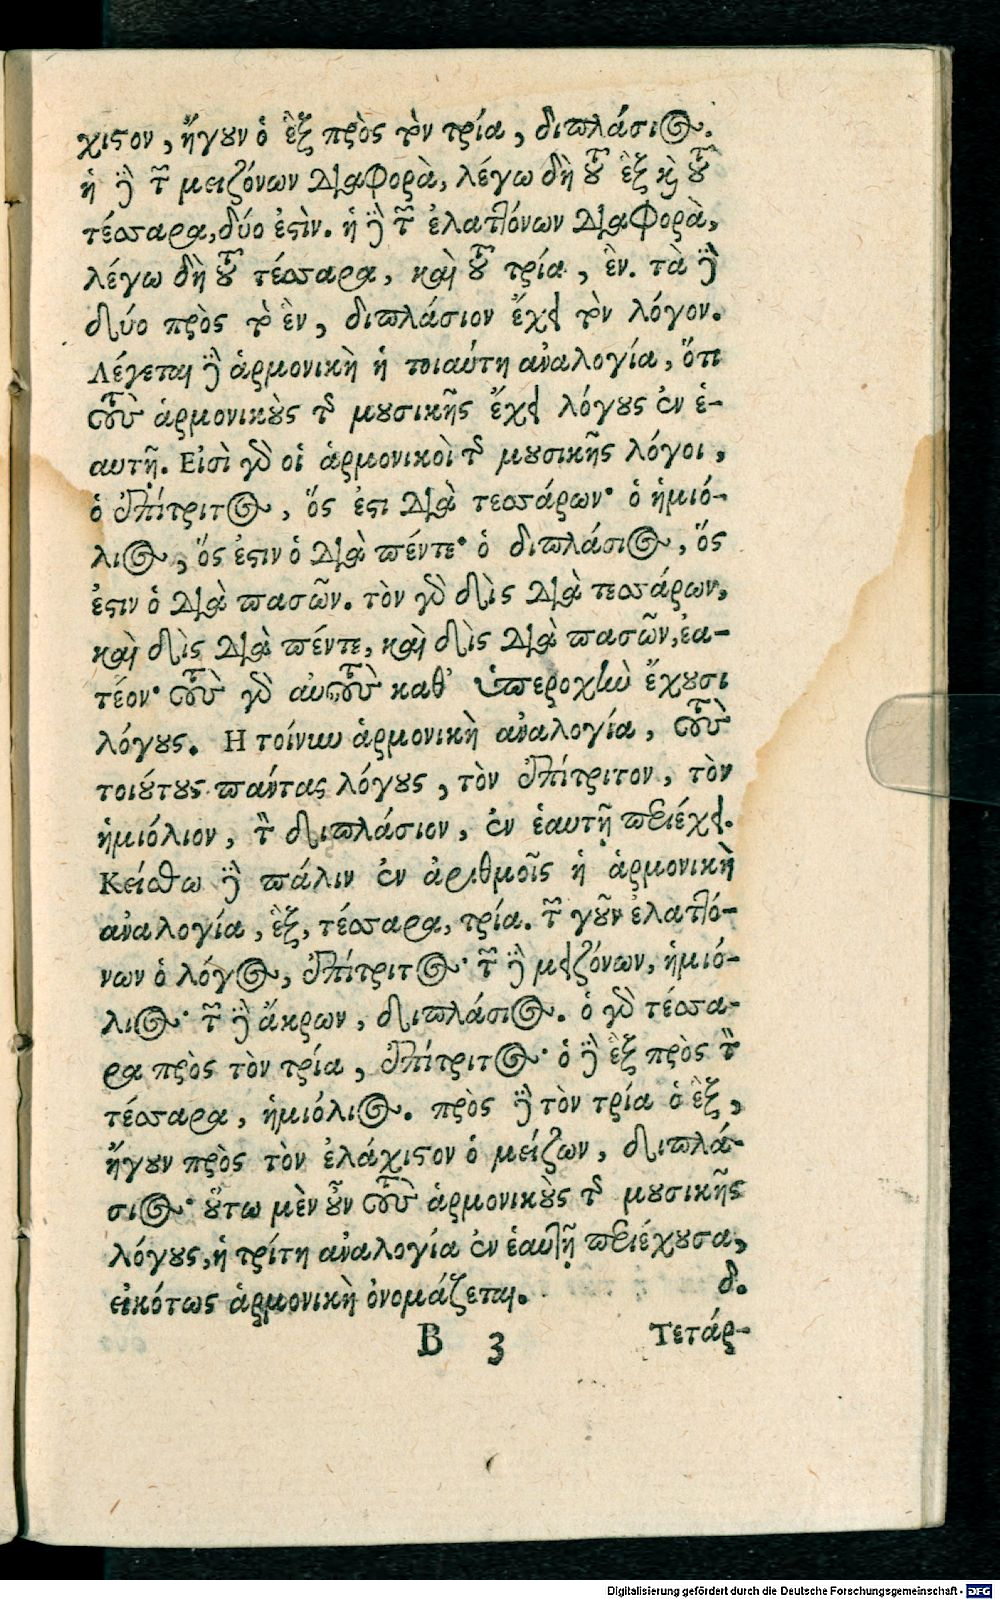 χιστον, ἤγουν ὁ ἓξ πρὸς τὸν τρία, διπλάσιος.
ἡ δὲ τῶν μειζόνων διαφορὰ, λέγω δὴ τοῦ ἓξ καὶ τοῦ
τέσσαρα, δύο ἐστὶν. ἡ δὲ τῶν ἐλαττόνων διαφορὰ,
λέγω δὴ τοῦ τέσσαρα, καὶ τοῦ τρία, ἓν. τὰ δὲ
δύο πρὸς τὸ ἓν, διπλάσιον ἔχει τὸν λόγον.
Λέγεται δὲ ἁρμονικὴ ἡ τοιαύτη ἀναλογία, ὅτι
τοὺς ἁρμονικοὺς τῆς μουσικῆς ἔχει λόγους ἐν ἑ-
αυτῇ. Εἰσὶ γὰρ οἱ ἁρμονικοὶ τῆς μουσικῆς λόγοι,
ὁ ἐπίτριτος, ὅς ἐστι διὰ τεσσάρων· ὁ ἡμιό-
λιος, ὅς ἐστιν ὁ διὰ πέντε· ὁ διπλάσιος, ὅς
ἐστιν ὁ διὰ πασῶν. τὸν γὰρ δὶς διὰ τεσσάρων,
καὶ δὶς διὰ πέντε, καὶ δὶς διὰ πασῶν, ἐα-
τέον· τοὺς γὰρ αὐτοὺς καθ’ ὑπεροχὴν ἔχουσι
λόγους. Ἡ τοίνυν ἁρμονικὴ ἀναλογία, τοὺς
τοιούτους πάντας λόγους, τὸν ἐπίτριτον, τὸν
ἡμιόλιον, τὸν διπλάσιον, ἐν ἑαυτῇ περιέχει.
Κείσθω δὲ πάλιν ἐν ἀριθμοῖς ἡ ἁρμονικὴ
ἀναλογία, ἓξ, τέσσαρα, τρία. τῶν γοῦν ἐλαττό-
νων ὁ λόγος, ἐπίτριτος· τῶν δὲ μειζόνων, ἡμιό-
λιος· τῶν δὲ ἄκρων, διπλάσιος. ὁ γὰρ τέσσα-
ρα πρὸς τὸν τρία, ἐπίτριτος· ὁ δὲ ἓξ πρὸς τὸν
τέσσαρα, ἡμιόλιος. πρὸς δὲ τὸν τρία ὁ ἓξ,
ἤγουν πρὸς τὸν ἐλάχιστον ὁ μείζων, διπλά-
σιος· οὕτω μὲν οὖν τοὺς ἁρμονικοὺς τῆς μουσικῆς
λόγους, ἡ τρίτη ἀναλογία ἐν ἑαυτῇ περιέχουσα,
εἰκότως ἁρμονικὴ ὀνομάζεται. δ.
B 3 Τετάρ-
Digitalisierung gefördert durch die Deutsche Forschungsgemeinschaft - DFG